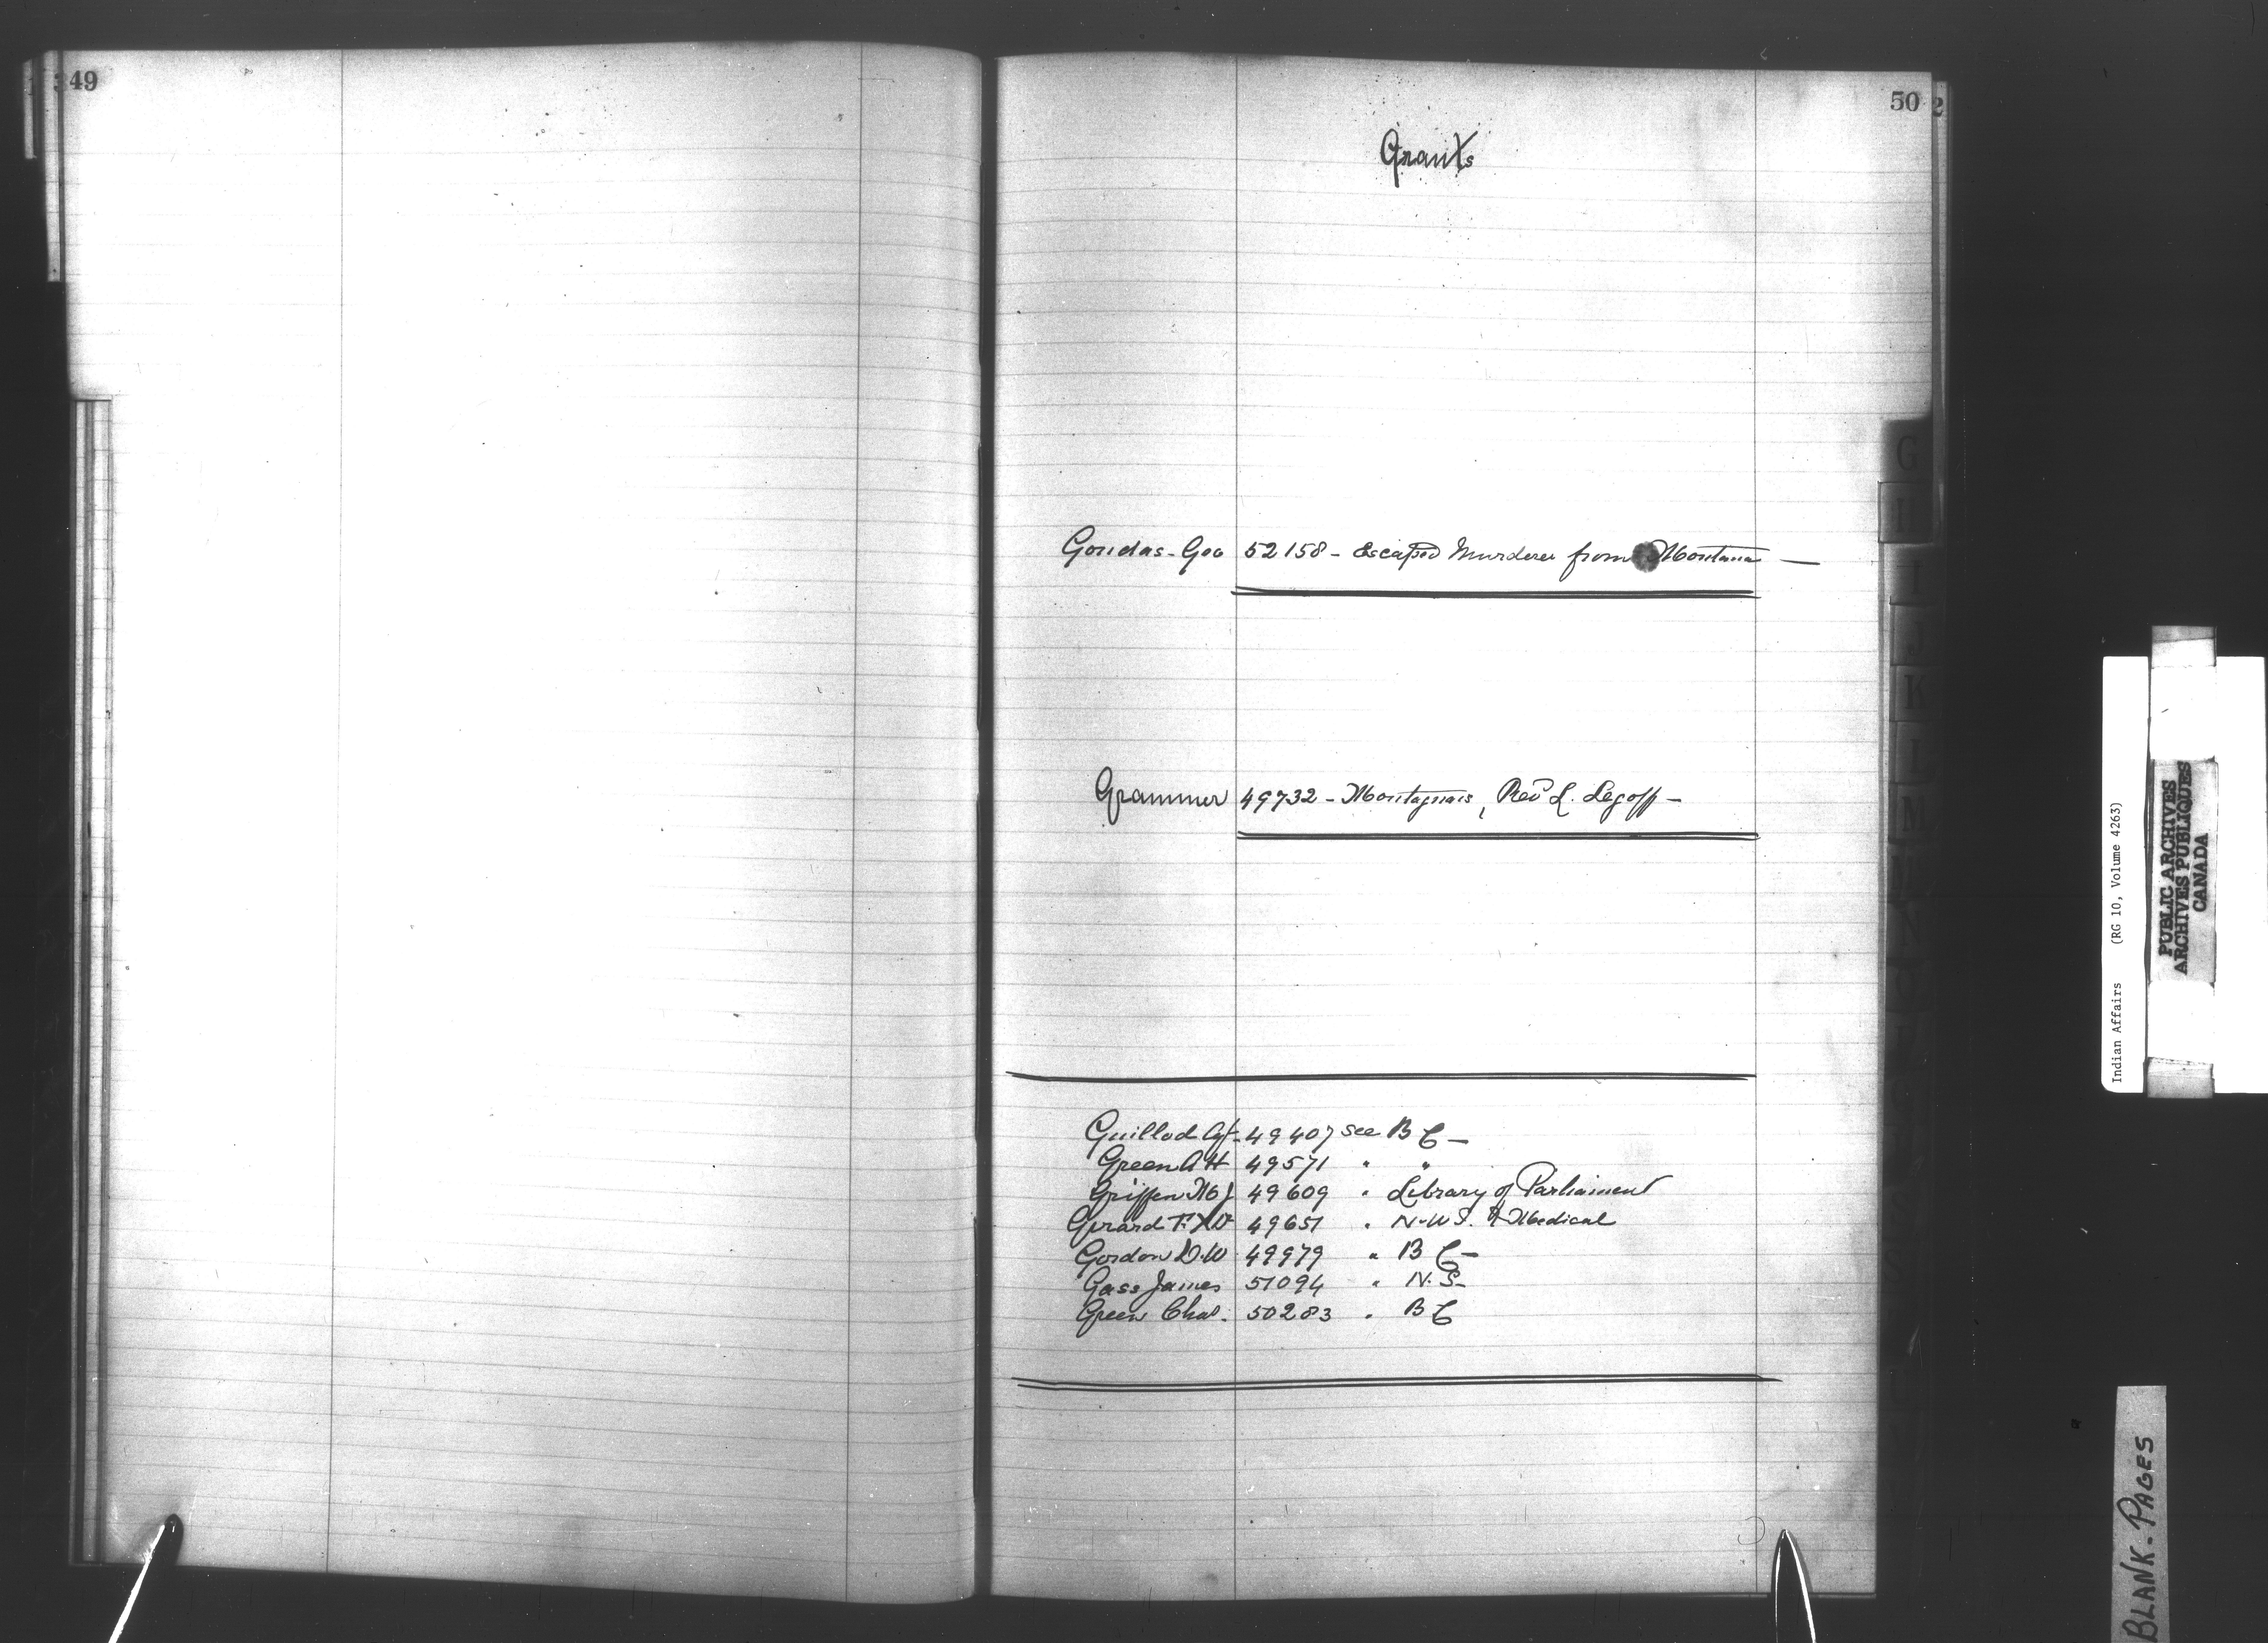 49
50
Grants
Gondas - Geo 52158 - Escaped Murderer from Montana —
Grammer 49732 - Montagnais, Rev L. Legoff -
Guillod Agt - 49407 see B C -
Green A H 49571 " "
Griffen M J 49609 " Library of Parliament
Girard F. X Dr 49651 " N.W.T. & Medical
Gordon D. W. 49979 " B C -
Gass James 51094 " N. S -
Green Chas. 50283 " B C
G
H
I
J
K
L
M
Indian Affairs (RG 10, Volume 4263)
PUBLIC ARCHIVES
ARCHIVES PUBLIQUES
CANADA
BLANK - PAGES